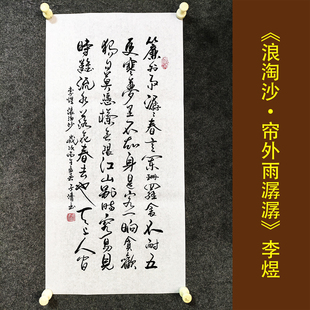 簾外雨潺潺春意闌珊羅衾不耐五
更寒夢里不知身是客一晌貪歡
獨自莫憑欄無限江山別時容易見
時難流水落花春去也天上人間
李煜浪淘沙
《浪淘沙·帘外雨潺潺》李煜